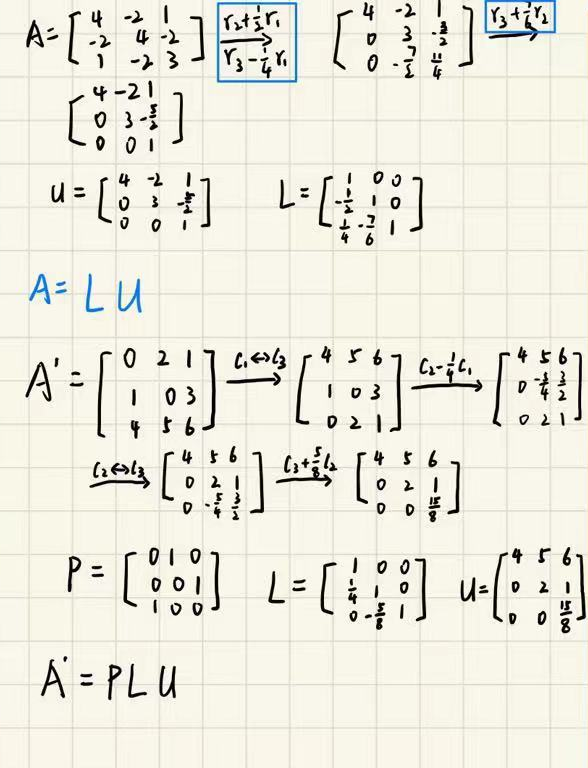 A = [4 -2 1; -2 4 -2; 1 -2 3] r₂+½r₁ r₃-¼r₁ → [4 -2 1; 0 3 -3/2; 0 -7/2 11/4] r₃+ r₂ →
[4 -2 1; 0 3 -3/2; 0 0 1]
U = [4 -2 1; 0 3 -3/2; 0 0 1] L = [1 0 0; -1/2 1 0; 1/4 -7/6 1]
A = L U
A' = [0 2 1; 1 0 3; 4 5 6] C₁↔C₃ → [4 5 6; 1 0 3; 0 2 1] C₂-¼C₁ → [4 5 6; 0 -5/4 3/2; 0 2 1]
C₂↔C₃ → [4 5 6; 0 2 1; 0 -5/4 3/2] C₃+5/8C₂ → [4 5 6; 0 2 1; 0 0 15/8]
P = [0 1 0; 0 0 1; 1 0 0] L = [1 0 0; 1/4 1 0; 0 -5/8 1] U = [4 5 6; 0 2 1; 0 0 15/8]
A' = P L U